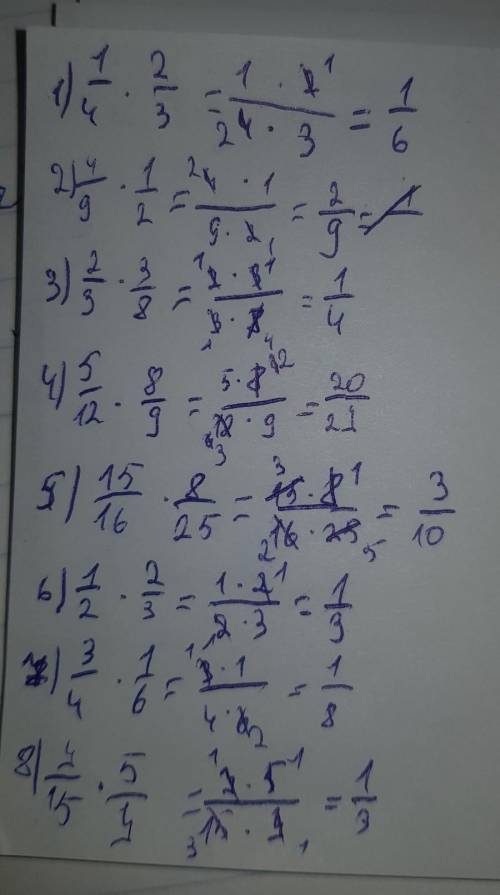 1) 1/4 · 2/3 = 1 · 2 1 / 2 4 · 3 = 1/6
2) 4/9 · 1/2 = 2 4 · 1 / 9 · 2 1 = 2/9 = 1
3) 2/3 · 3/8 = 1 2 · 3 1 / 1 3 · 8 4 = 1/4
4) 5/12 · 8/9 = 5 · 8 2 / 3 12 · 9 = 20/21
5) 15/16 · 8/25 = 3 15 · 8 1 / 2 16 · 25 5 = 3/10
6) 1/2 · 2/3 = 1 · 2 1 / 2 · 3 = 1/3
7) 3/4 · 1/6 = 1 3 · 1 / 4 · 6 2 = 1/8
8) 4/15 · 5/4 = 1 4 · 5 1 / 3 15 · 4 1 = 1/3